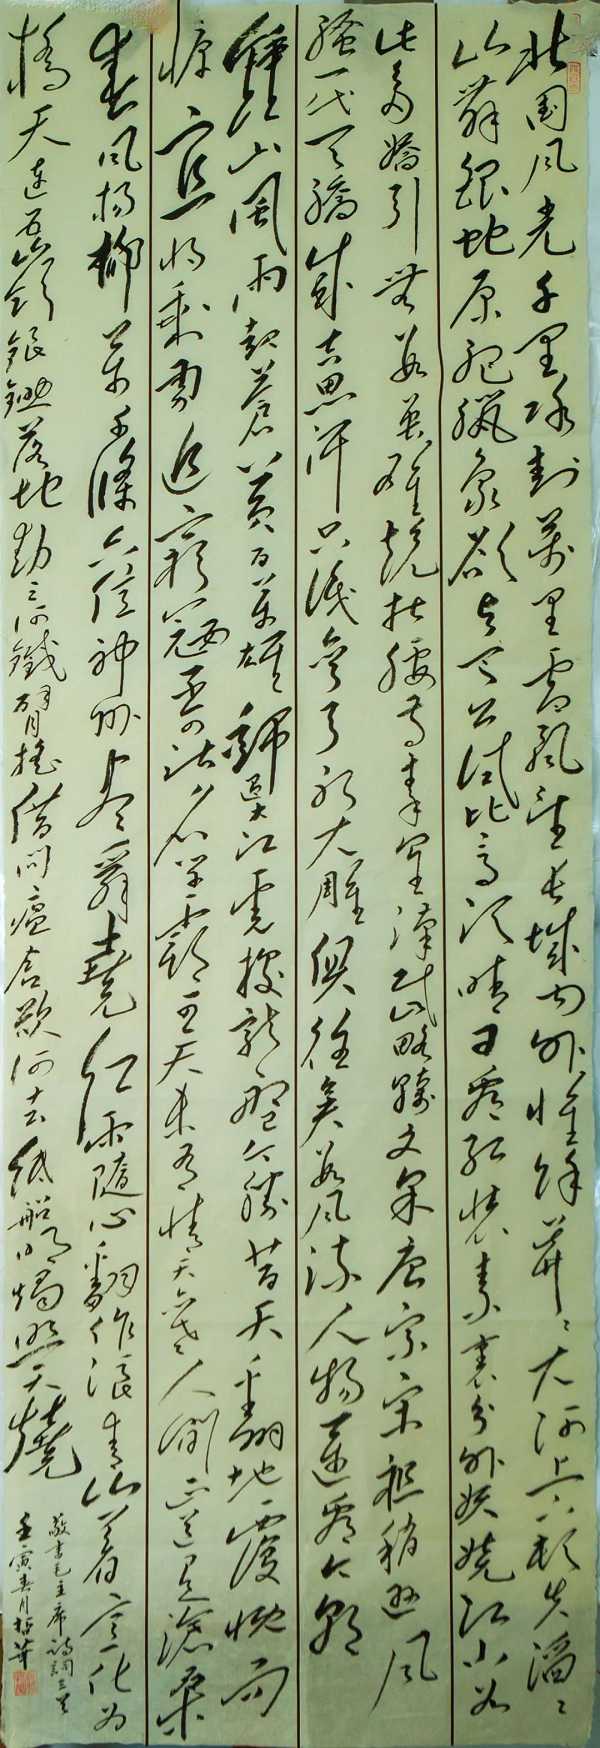 北国风光千里冰封万里雪飘望长城内外惟馀莽〻大河上下顿失滔〻
山舞银蛇原驰腊象欲与天公试比高须晴日看红装素裹分外妖娆江山如
此多娇引无数英雄竞折腰昔秦皇汉武略输文采唐宗宋祖稍逊风
骚一代天骄成吉思汗只识弯弓射大雕俱往矣数风流人物还看今朝
鍾山風雨起苍黄百万雄師過大江虎踞龙盘今胜昔天翻地覆慨而
慷宜将剩勇追穷寇不可沽名学霸王天若有情天亦老人间正道是滄桑
春风杨柳万千條六億神州尽舜堯红雨隨心翻作浪青山着意化为
橋天连五岭銀鋤落地动三河鐵臂摇借问瘟君欲何去纸船明燭照天燒
敬书毛主席诗词三首
壬寅春月